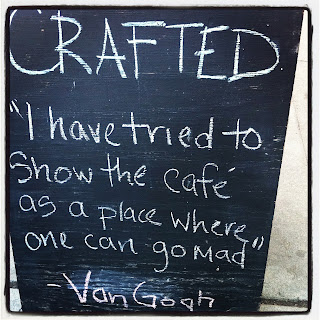 CRAFTED
"I have tried to
Show the café
as a place where
one can go Mad"
-Van Gogh